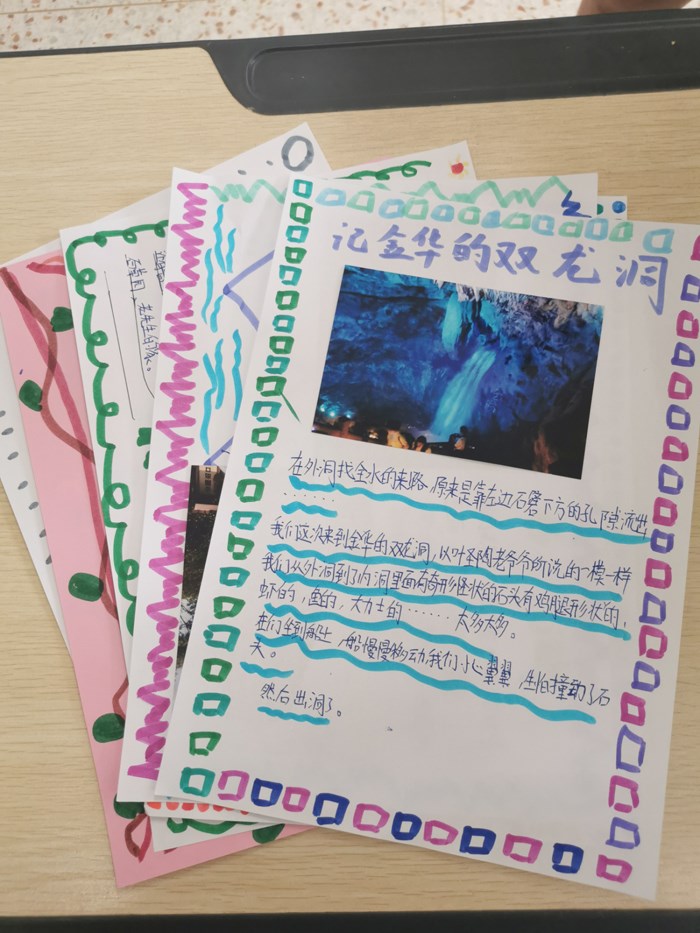 记金华的双龙洞
在外洞找全水的来路,原来是靠左边石壁下方的孔隙流出
……
我们这次来到金华的双龙洞,以叶圣陶老爷爷所说的一模一样
我们从外洞到了内洞里面有奇形怪状的石头有鸡腿形状的,
虾的,鱼的,大力士的……太多太多。
在们坐到船上,船慢慢移动,我们小心翼翼,生怕撞动了石
头。
然后出洞了。